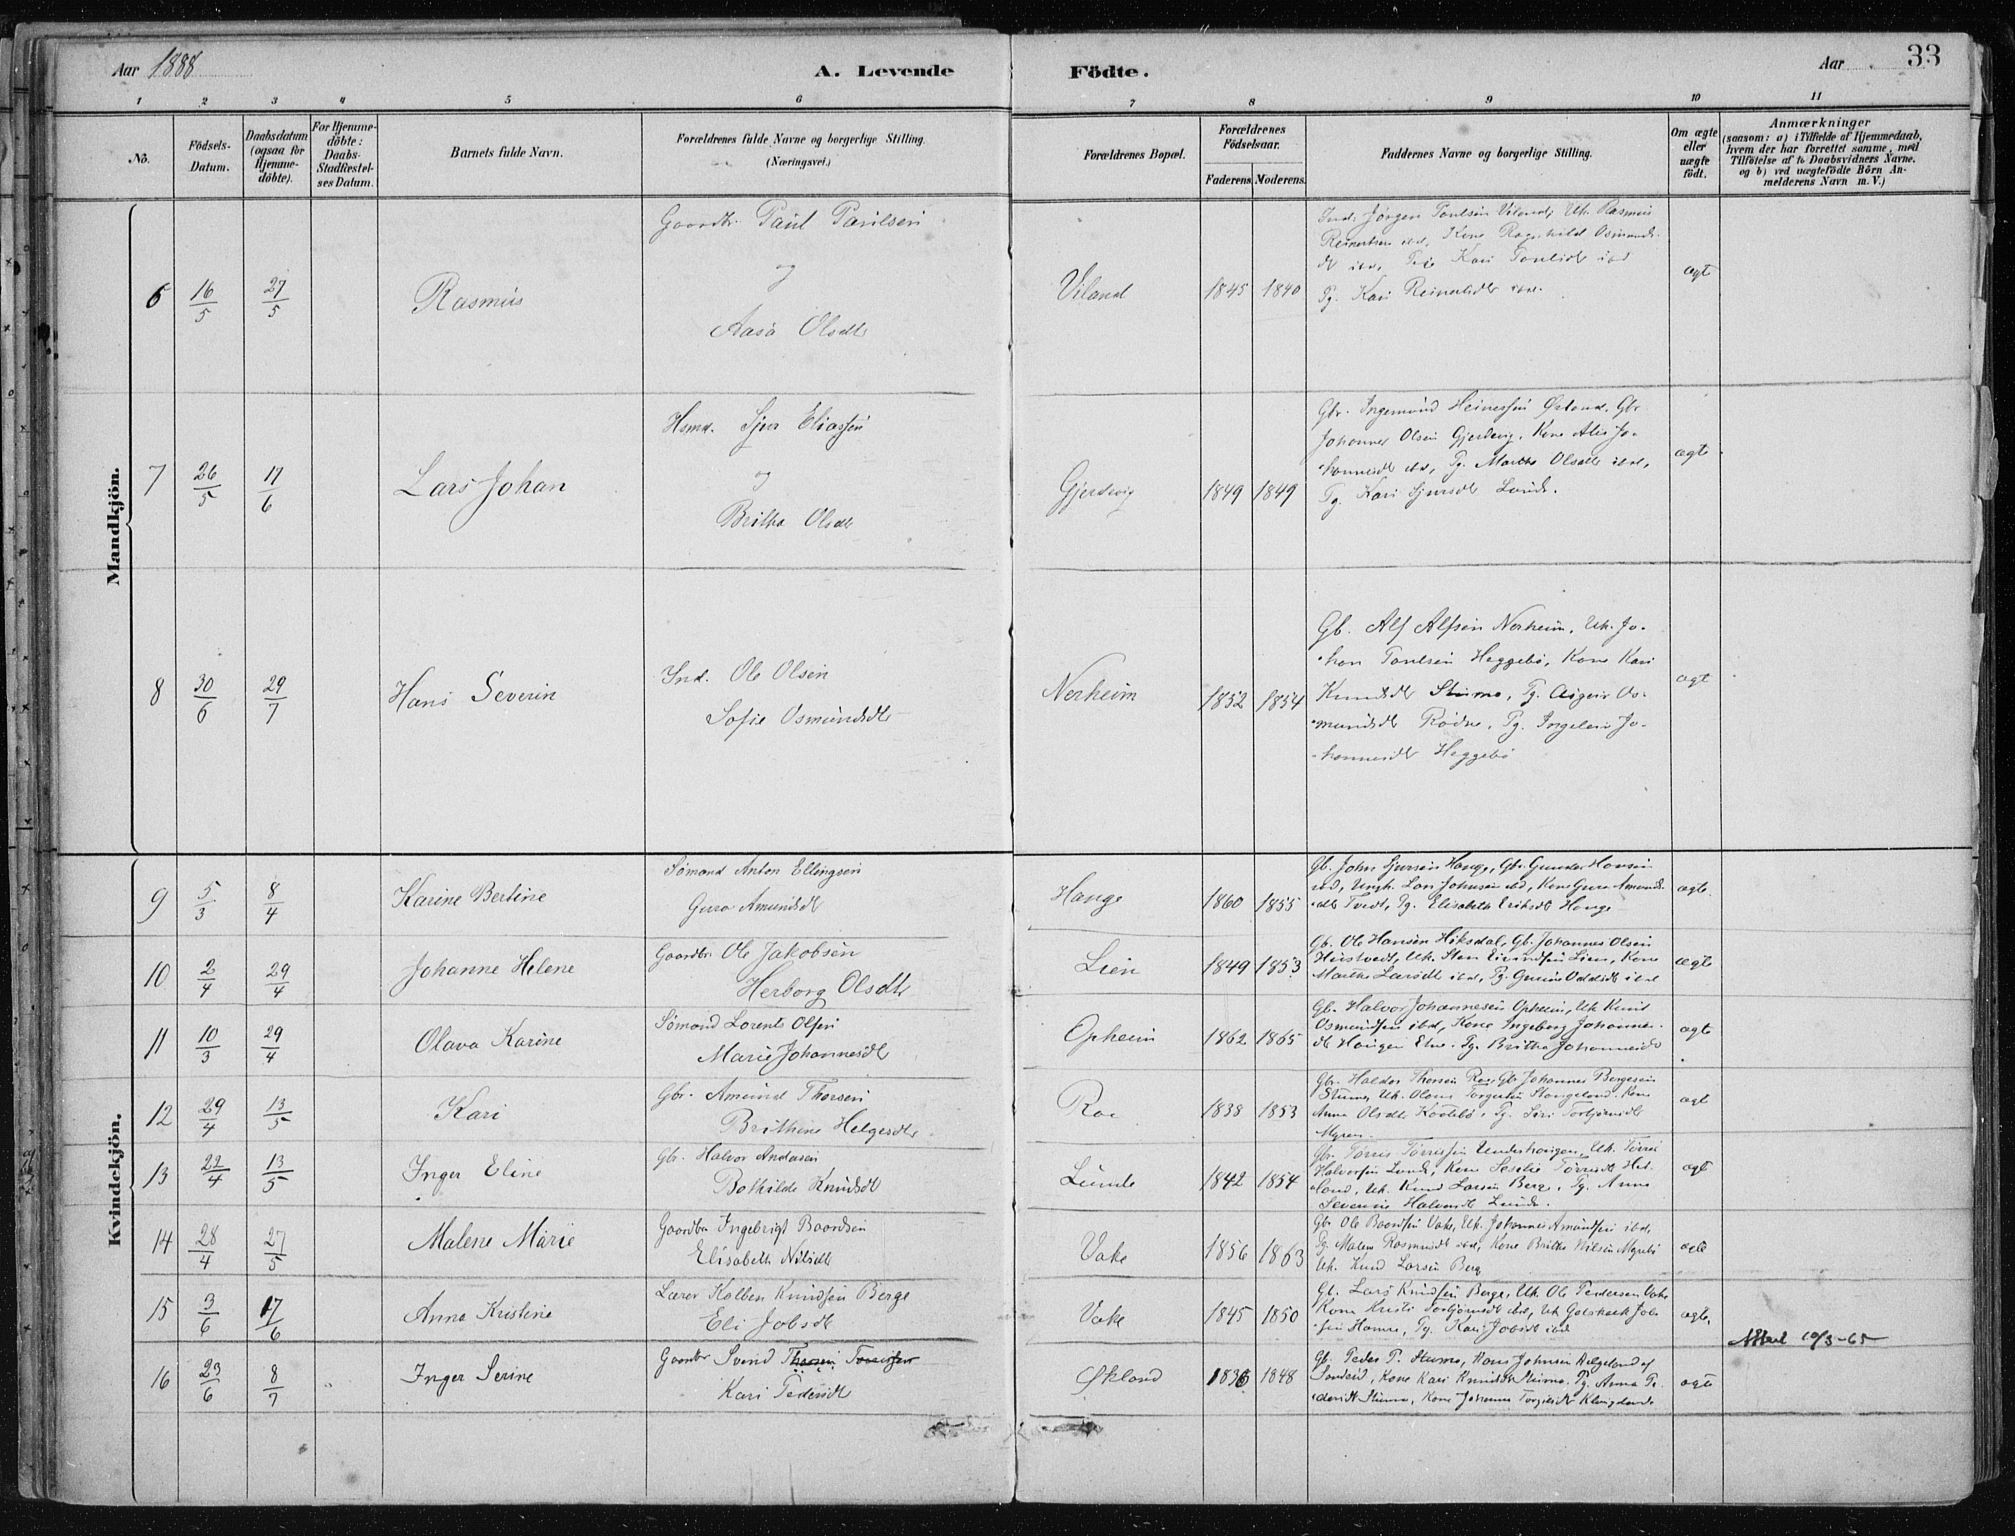 Aar 1888
A. Levende Födte.
Aar
33
1 2 3 4 5 6 7 8 9 10 11
No.
Födsels-
Datum.
Daabsdatum
(ogsaa for
Hjemme-
döbte).
For Hjemme-
döbte:
Daabs-
Stadfæstel-
ses Datum.
Barnets fulde Navn.
Forældrenes fulde Navne og borgerlige Stilling.
(Næringsvei.)
Forældrenes Bopæl.
Forældrenes
Födselsaar.
Faderens. Moderens.
Faddernes Navne og borgerlige Stilling.
Om ægte
eller
uægte
födt.
Anmærkninger
(saasom: a) i Tilfælde af Hjemmedaab,
hvem der har forrettet samme, med
Tilföielse af to Daabsvidners Navne.
og b) ved uægtefödte Börn An-
melderens Navn m. V.)
Mandkjön.
6 16/5 27/5 Rasmus
Gaardbr. Paul Paulsen
og
Aasa Olsdtr
Viland 1845 1840
Ind. Jørgen Poulsen Viland, Uk. Rasmus
Reinertsen ibd, Kone Ragnhild Osmunds-
dt ibd, Pige Kari Poulsdt ibd
Pg. Kari Reinertsdtr ibd.
ægt
7 26/5 17/6 Lars Johan
Hsmd. Sjur Eliassen
og
Britha Olsdt
Gjerdevig 1849 1849
Gbr. Ingemund Heinessen Østend, Gbr
Johannes Olsen Gjerdevig, Kone Alis Jo-
hannesdt ibd, Pg. Martha Olsdtr ibd,
Pg. Kari Sjursdt Lunde.
ægte
8 30/6 29/7 Hans Severin
Ind. Ole Olsen
Sofie Osmundsdtr
Nerheim 1852 1854
Gb. Alf Alfsen Nerheim, Uk. Jo-
han Poulsen Heggebø, Kone Kari
Knudsdt Stumo, Pg. Asgjer Os-
mundsdt Rødne, Pg. Ingeleiv Jo-
hannesdt Heggebø
ægt
Kvindekjön.
9 5/3 8/4 Karine Bertine
Sømand Anton Ellingsen
Guro Amundsdt
Hauge 1860 1855
Gb. John Sjursen Hauge, Gbr Gunder Hansen
ibd, Ungk. Lars Johnsen ibd, Kone Guro Amunds-
dtr Tvedt, Pg. Elisabeth Eriksdt Hauge
ægte.
10 2/4 29/4 Johanne Helene
Gaardbr. Ole Jakobsen
Herborg Olsdtr
Lien 1849 1853
Gb. Ole Hansen Hiksdal, Gb. Johannes Olsen
Uk. Sten Eivindsen Lien, Kone
Martha Larsdt ibd, Pg. Gunne Oddsdt ibd
ægte
11 10/3 29/4 Olava Karine
Sømand Lorents Olsen
Marie Johannesdt
Opheim 1862 1865
Gb. Halvor Johannesen Opheim, Uk Knud
Osmundsen ibd, Kone Ingeborg Johannes-
dt Haugen Etne. Pg. Britha Johannesdt
ægte
12 29/4 13/5 Kari
Gbr. Amund Thorsen
Brithine Helgesdtr
Roe 1838 1853
Gbr. Haldor Thorsen Roe, Gb Johannes Bergesen
Stumo, Uk. Olaus Torgersen Stangeland, Kone
Anna Olsdt, Pg. Siri Torbjørnsdt
Myren.
ægt
13 22/4 13/5 Inger Eline
Gbr. Halvor Andersen
Bothilde Knudsdt
Lunde 1842 1854
Gbr. Tørris Tørrissen Underhaugen, Uk. Tørris
Halvorsen Lunde, Kone Seselie Tørrisdt Het-
land, Uk. Knud Larsen Berge, Pg. Anna
Severine Halvorsdt Lunde.
ægt
14 28/4 27/5 Malene Marie
Gaardbr Ingebrigt Baardsen
Elisabeth Nilsdt
Vake 1856 1863
Gbr Ole Baardsen Vake, Uk. Johannes Amundsen ibd,
Pg. Malene Rasmusdt ibd, Kone Britha Nilsen Myrebø
Uk. Knud Larsen Berg
ægte
15 3/6 17/6 Anna Kristine
Lærer Kolben Knudsen Berge
Eli Jobsdt
Vake 1845 1850
Gb. Lars Knudsen Berge, Uk Ole Pedersen Vake
Kone Kristi Torbjørnsdt ibd, Uk Job-
sen Hamre, Pg. Kari Jobsdt ibd
ægte.
Attest 10/3-65
16 23/6 8/7 Inger Serine
Gaardbr Svend Thorsen Tørrissen
Kari Pedersdt
Økland 1836 1848
Gb. Peder P. Stumo, Hans Johnsen Helgeland af
Sandeid, Kone Kari Knudsdt Stumo, Pg. Anna Pe-
dersdt Stumo, Kone Johanna
ægte